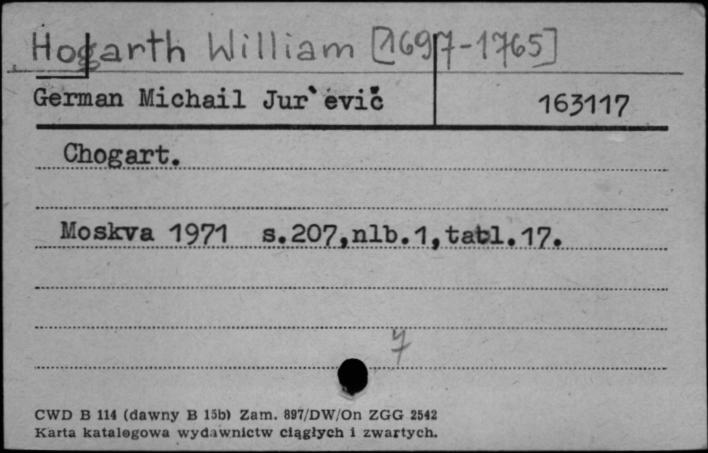 Hogarth William [1697-1765]
German Michail Jur`evič 163117
Chogart.
Moskva 1971 s.207,nlb.1,tabl.17.
7
CWD B 114 (dawny B 15b) Zam. 897/DW/On ZGG 2542
Karta katalogowa wydawnictw ciągłych i zwartych.